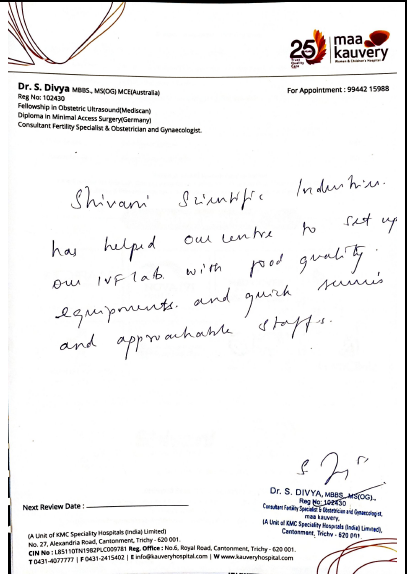 25
maa
kauvery
Women & Children's Hospital
Dr. S. Divya MBBS., MS(OG) MCE(Australia)
Reg No: 102430
Fellowship in Obstetric Ultrasound(Mediscan)
Diploma in Minimal Access Surgery(Germany)
Consultant Fertility Specialist & Obstetrician and Gynaecologist.
For Appointment : 99442 15988
Shivani Scientific Industries.
has helped our centre to set up
our IVF lab. with good quality
equipments. and quick
and approachable staffs.
Dr. S. DIVYA, MBBS., MS(OG).,
Reg No: 102430
Consultant Fertility Specialist & Obstetrician and Gynaecologist,
maa kauvery,
(A Unit of KMC Speciality Hospitals (India) Limited),
Cantonment, Trichy - 620 001
Next Review Date :
(A Unit of KMC Speciality Hospitals (India) Limited)
No. 27, Alexandria Road, Cantonment, Trichy - 620 001.
CIN No : L85110TN1982PLC009781 Reg. Office : No.6, Royal Road, Cantonment, Trichy - 620 001.
T 0431-4077777 | F 0431-2415402 | E info@kauveryhospital.com | W www.kauveryhospital.com